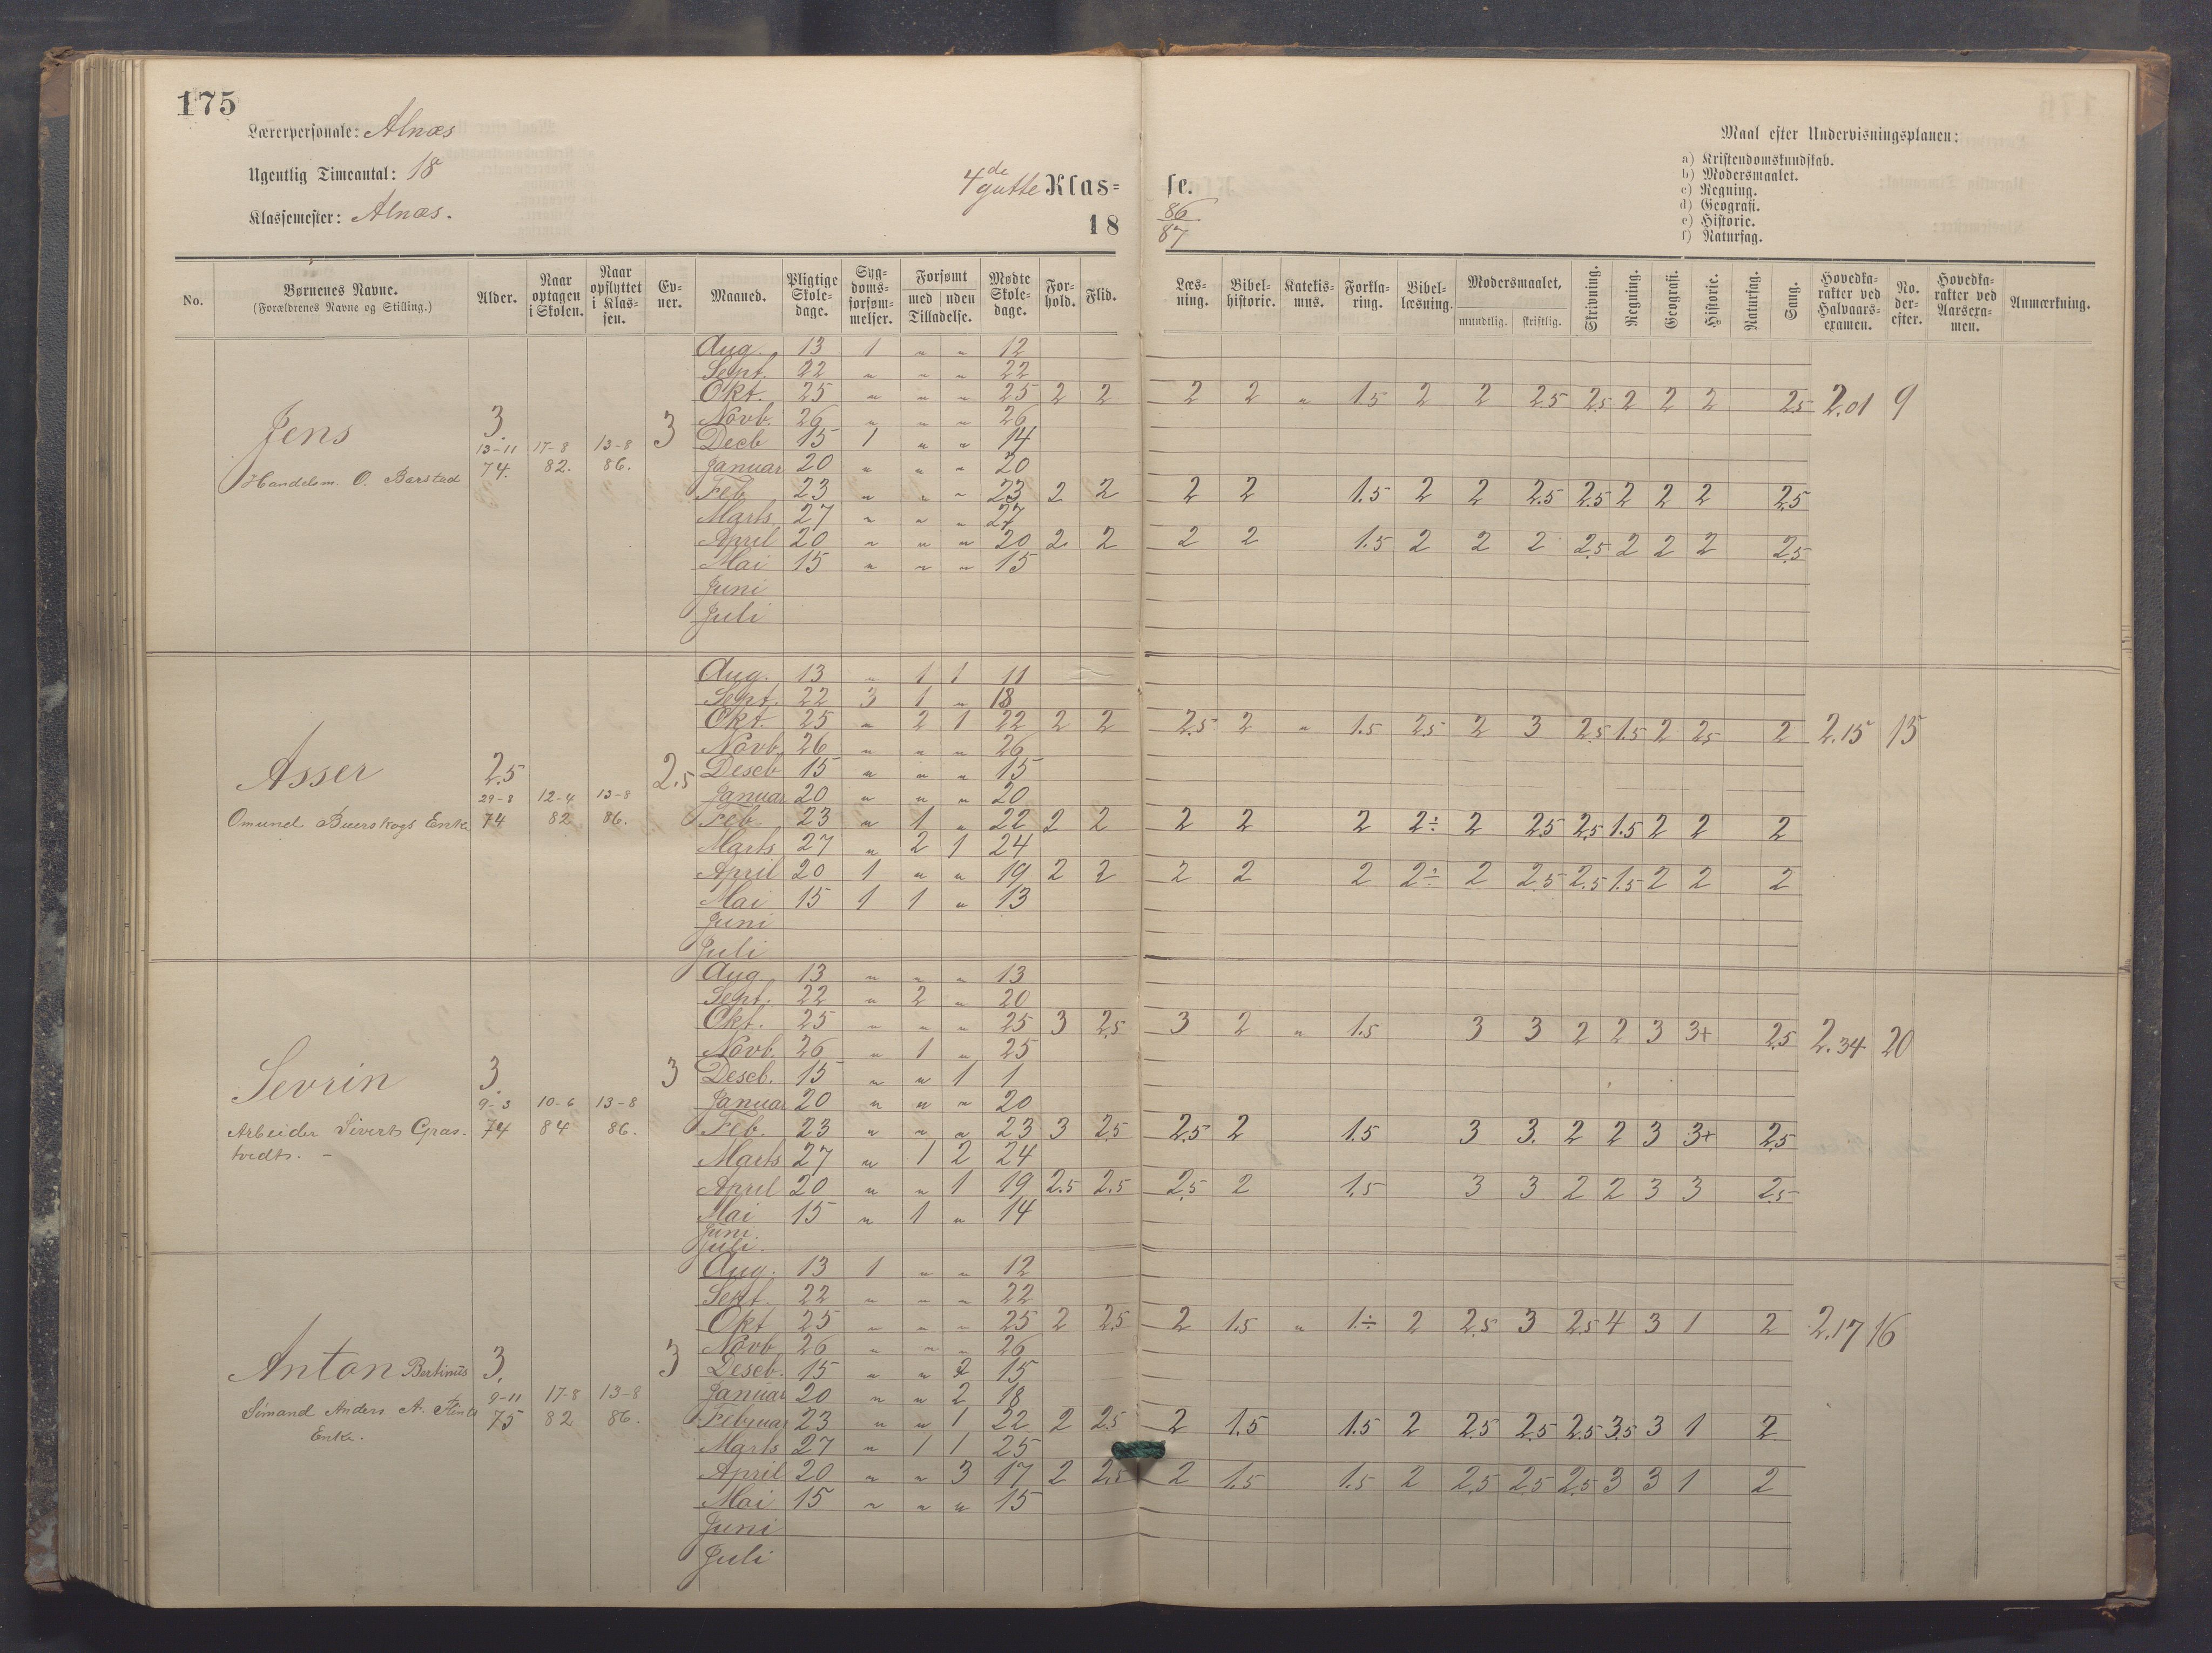 175
Lærerpersonale: Alnæs
Ugentlig Timeantal: 18
Klassemester: Alnæs.
4de gutte Klas= se.
18 86/87
Maal efter Undervisningsplanen:
a) Kristendomskundskab.
b) Modersmaalet.
c) Regning.
d) Geografi.
e) Historie.
f) Naturfag.
No. | Børnenes Navne. (Forældrenes Navne og Stilling.) | Alder. | Naar optagen i Skolen. | Naar opflyttet i Klas-sen. | Ev-ner. | Maaned. | Pligtige Skole-dage. | Syg-doms-forsøm-melser. | Forsømt med uden Tilladelse. | Mødte Skole-dage. | For-hold. | Flid. | Læs-ning. | Bibel-historie. | Katekis-mus. | Forkla-ring. | Bibel-læsning. | Modersmaalet, mundtlig. skriftlig. | Skrivning. | Regning. | Geografi. | Historie. | Naturfag. | Sang. | Hovedka-rakter ved Halvaars-examen. | No. der-efter. | Hovedka-rakter ved Aarsexa-men. | Anmærkning.
Jens
Handelsm. O. Barstad
3. 13-11 74. | 17-8 82. | 13-8 86. | 3
Aug. 13 1 " " 12
Sept. 22 " " " 22
Okt. 25 " " " 25 2 2 2 2 " 1.5 2 2 2.5 2.5 2 2 2 2.5 2.01 9
Novb. 26 " " " 26
Decb 15 1 " " 14
Januar 20 " " " 20
Feb. 23 " " " 23 2 2 2 2 1.5 2 2 2.5 2.5 2 2 2 2.5
Marts 27 " " " 27
April 20 " " " 20 2 2 2 2 1.5 2 2 2 2.5 2 2 2 2.5
Mai 15 " " " 15
Juni
Juli
Asser
Omund Buerskogs Enke
2.5 29-8 74 | 12-4 82 | 13-8 86. | 2.5
Aug. 13 " 1 1 11
Sept. 22 3 1 " 18
Okt. 25 " 2 1 22 2 2 2.5 2 " 1.5 2.5 2 3 2.5 1.5 2 2.5 2 2.15 15
Novb. 26 " " " 26
Deseb 15 " " " 15
Januar 20 " " " 20
Feb. 23 " 1 " 22 2 2 2 2 2 2÷ 2 2.5 2.5 1.5 2 2 2
Marts 27 " 2 1 24
April 20 1 " " 19 2 2 2 2 2 2÷ 2 2.5 2.5 1.5 2 2 2
Mai 15 1 1 " 13
Juni
Juli
Sevrin
Arbeider Siverts Gras-
tvedts. -
3. 9-3 74 | 10-6 84 | 13-8 86. | 3
Aug 13 " " " 13
Sept. 22 " 2 " 20
Okt. 25 " " " 25 3 2.5 3 2 " 1.5 3 3 2 2 3 3+ 2.5 2.34 20
Novb. 26 " 1 " 25
Deseb. 15 " " 1 1
Januar 20 " " " 20
Feb. 23 " " " 23 3 2.5 2.5 2 1.5 3 3. 2 2 3 3+ 2.5
Marts 27 " 1 2 24
April 20 " " 1 19 2.5 2.5 2.5 2 1.5 3 3 2 2 3 3 2.5
Mai 15 " 1 " 14
Juni.
Juli.
Anton Bertinus
Simand Anders A.
Enke.
3. 9-11 75 | 17-8 82 | 13-8 86. | 3
Aug. 13 1 " " 12
Sept. 22 " " " 22
Okt 25 " " " 25 2 2.5 2 1.5 " 1÷ 2 2.5 3 2.5 4 3 1 2 2.17 16
Novb 26 " " " 26
Deseb. 15 " " 2 15
Januar 20 " " 2 18
Februar 23 " " 1 22 2 2.5 2 1.5 1.5 2 2.5 2.5 2.5 3.5 3 1 2
Marts 27 " 1 1 25
April 20 " " 3 17 2 2.5 2 1.5 1.5 2 2.5 2.5 2.5 3 3 1 2
Mai 15 " " " 15
Juni
Juli